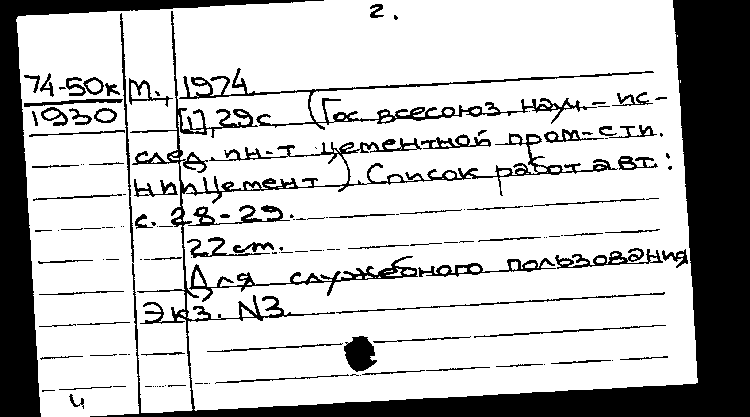 2.
74-50к М., 1974
1930 [1], 29с. (Гос. всесоюз. науч.-ис-
след. ин-т цементной пром-сти.
НИИЦемент). Список работ авт.:
с. 28-29.
22 см.
Для служебного пользования
Экз. N3.
ч